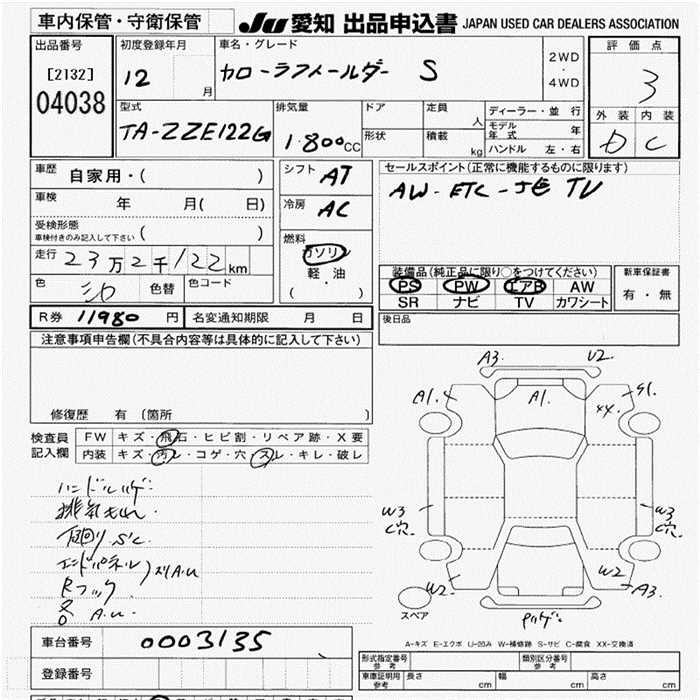 車内保管・守衛保管
JU 愛知 出品申込書 JAPAN USED CAR DEALERS ASSOCIATION
出品番号
[2132]
04038
初度登録年月
12
月
車名・グレード
カローラフィールダー S
2WD
・
4WD
評価点
3
外装 内装
D C
型式
TA-ZZE122G
排気量
1.800CC
ドア
形状
定員
人
積載
kg
ディーラー・並行
モデル年式 年
ハンドル 左・右
車歴
自家用・( )
車検
年 月( 日)
受検形態
車検付きのみ記入して下さい
( )
走行
23万2千122km
色
シロ
色替
色コード
シフト AT
冷房 AC
燃料
ガソリン
・
軽油
( )
セールスポイント(正常に機能するものに限ります)
AW - ETC - TV
装備品(純正品に限り○をつけてください)
PS PW エアB AW
SR ナビ TV カワシート
新車保証書
有・無
R券 11980 円
名変通知期限 月 日
後日品
注意事項申告欄(不具合内容等は具体的に記入して下さい)
修復歴 有 〔箇所 〕
検査員
記入欄
FW キズ・飛石・ヒビ割・リペア跡・X要
内装 キズ・汚レ・コゲ・穴・スレ・キレ・破レ
ハンドルハゲ
排気もれ
下回り S.C.
エンドパネル
Rフック
各 A.U.
A3. U2.
A1. A1. S1.
XX.
W3 W3
C穴.
W2 W2 A3.
スペア
A-キズ E-エクボ U-凹み W-補修跡 S-サビ C-腐食 XX-交換済
車台番号 0003135
登録番号
形式指定番号
参考
類別区分番号
参考
車庫証明用
参考
長さ cm
幅 cm
高さ cm